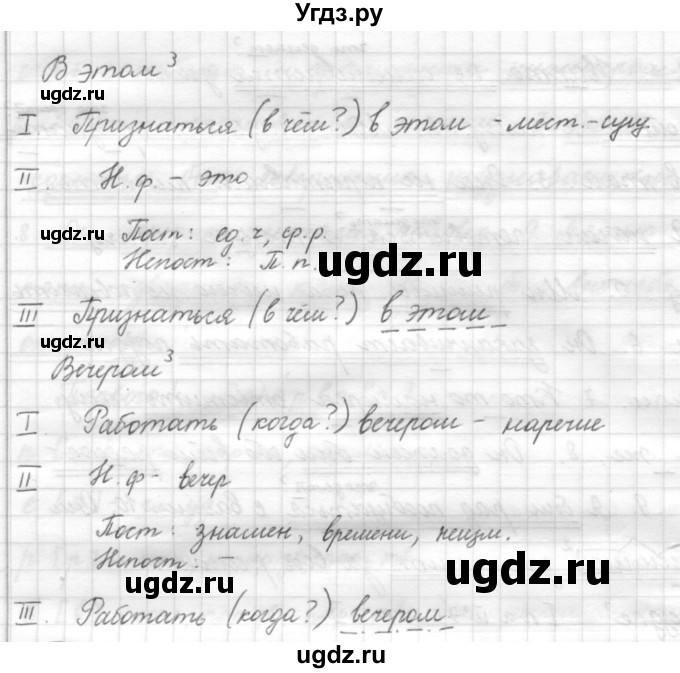 Угдз.ру
В этом³
ugdz.ru
I Признаться (в чём?) в этом - мест.-сущ.
II. Н.ф. - это
ugdz.ru Пост: ед.ч, ср.р.
ugdz.ru
Непост: П.п.
III Признаться (в чём?) в этом
ugdz.ru
Вечером³
I. Работать (когда?) вечером - наречие
II Н.ф - вечер
Пост: знамен, времени, неизм.
Непост: -
ugdz.ru ugdz.ru
III. Работать (когда?) вечером
ugdz.ru
ugdz.ru